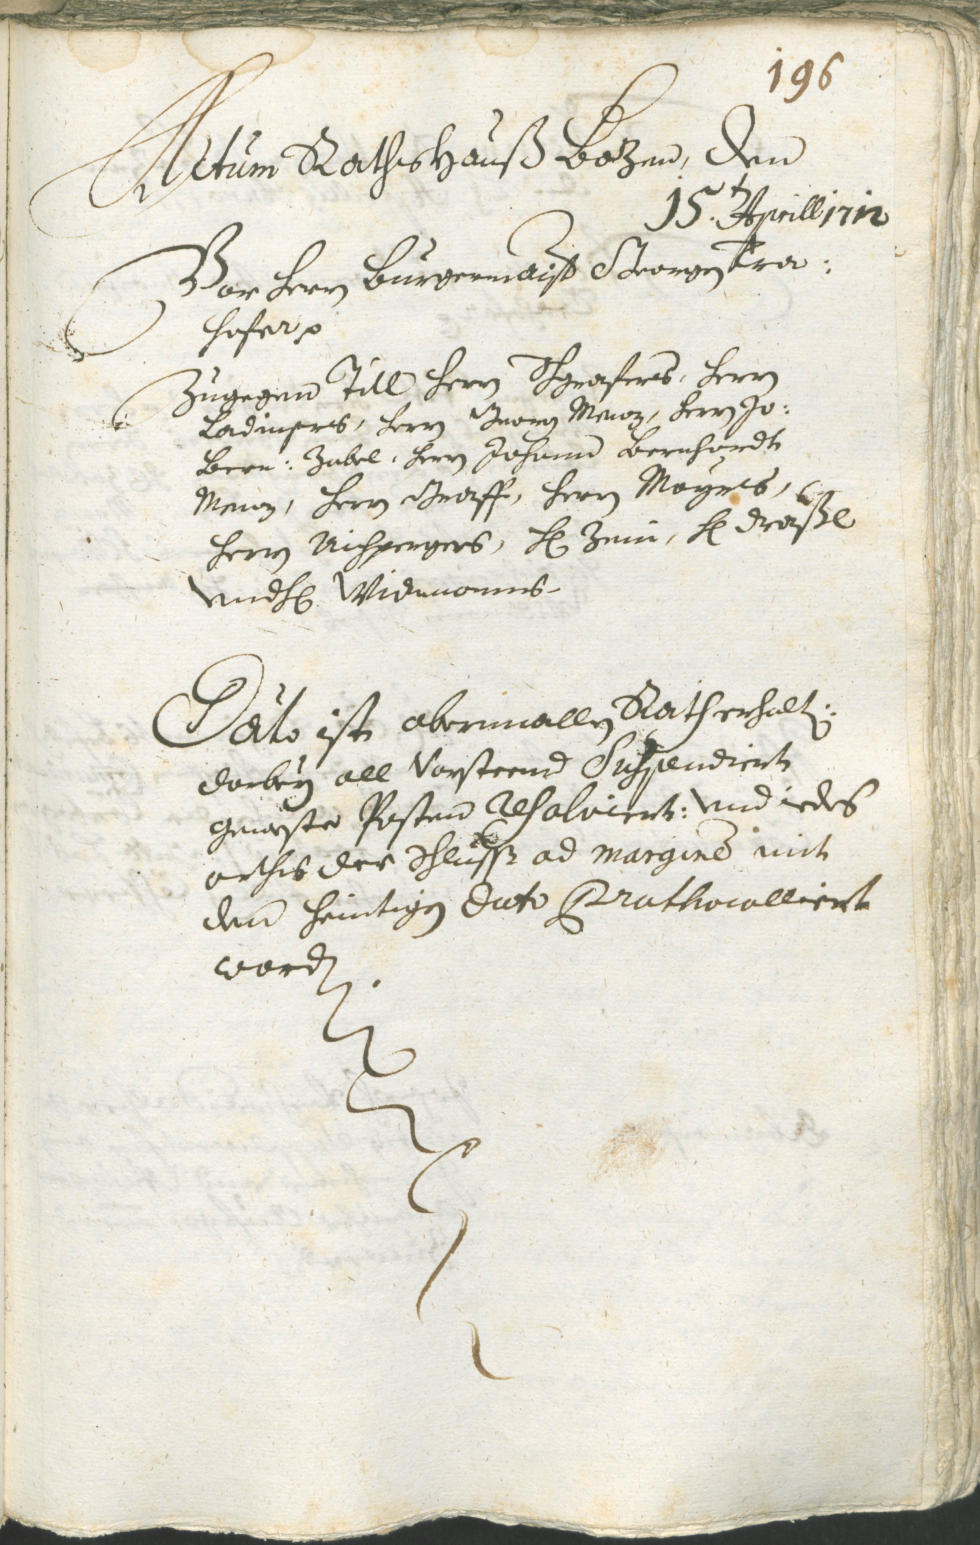 196
Actum Rathshauß Bozen, den
15.t Aprill 1712
Vor Herrn Burgermaist Georgen Tra:
hofer
Zugegen Titl Herrn Herrn
Ladiners, Herrn Georg Menz, Herrn Jo:
Bern: Zabel, Herrn Johann Bernhardt
Menz, Herrn Graff, Herrn Mayrls,
Herrn Aichpergers, H Zeni, H
und H Widmanns
Dato ist abermallen Rath erhalt:
darbey all vorsteend Suspendiert
geweste Posten Resolviert: und iedes
orths der Schlusß ad marginem mit
den heintigen dato Prothocolliert
worden